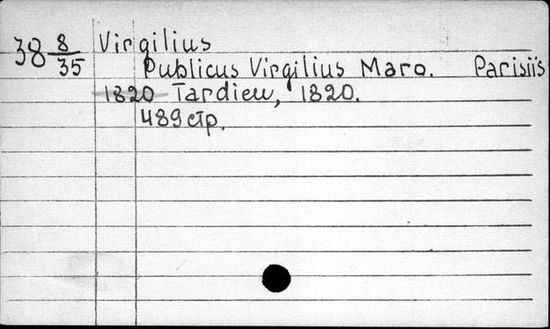 38 8/35 Virgilius
Publicus Virgilius Maro. Parisiis
1820 Tardieu, 1820.
489 стр.